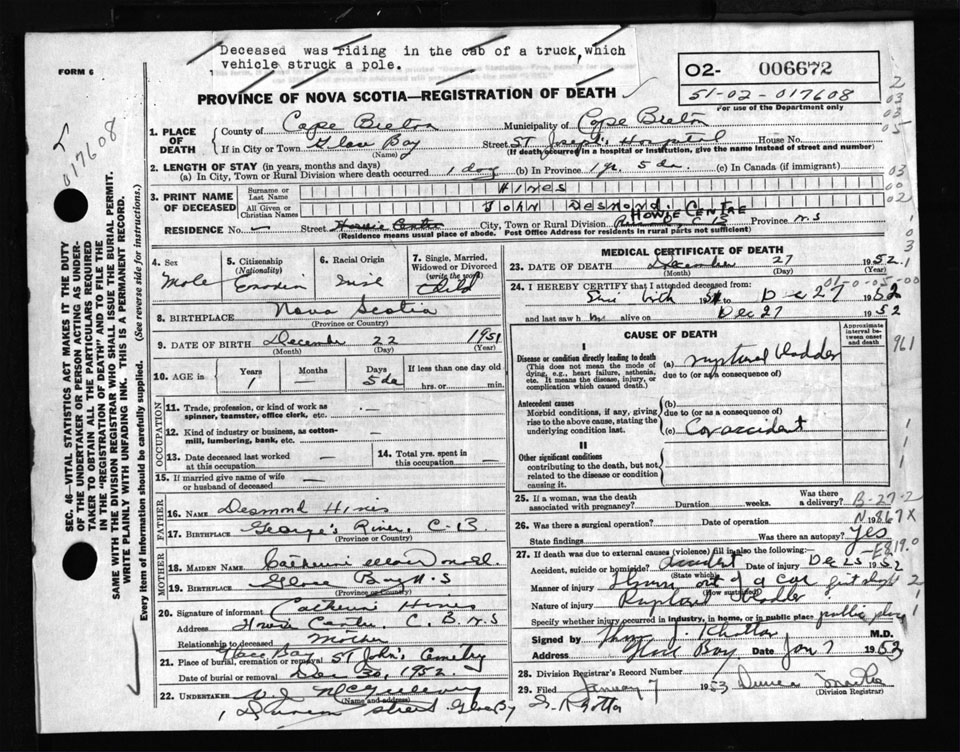 Deceased was riding in the cab of a truck, which
vehicle struck a pole.
FORM 6
O2- 006672
51-02-017608
For use of the Department only
017608
PROVINCE OF NOVA SCOTIA—REGISTRATION OF DEATH
1. PLACE OF DEATH
County of Cape Breton Municipality of Cape Breton
If in City or Town Glace Bay Street ST Joseph Hospital House No.
(Name) (If death occurred in a hospital or Institution, give the name instead of street and number)
2. LENGTH OF STAY (in years, months and days)
(a) In City, Town or Rural Division where death occurred 1 day (b) In Province 1 yr. 5 da (c) In Canada (if immigrant)
3. PRINT NAME OF DECEASED
Surname or Last Name HINES
All Given or Christian Names JOHN DESMOND
RESIDENCE No. — Street Howie Center City, Town or Rural Division HOWIE CENTRE C B Province N.S
(Residence means usual place of abode. Post Office Address for residents in rural parts not sufficient)
4. Sex Male
5. Citizenship (Nationality)
6. Racial Origin
7. Single, Married, Widowed or Divorced (write the word) Child
8. BIRTHPLACE Nova Scotia
(Province or Country)
9. DATE OF BIRTH December 22 1951
(Month) (Day) (Year)
10. AGE in Years Months Days If less than one day old
1 — 5 da hrs. or min.
OCCUPATION
11. Trade, profession, or kind of work as spinner, teamster, office clerk, etc. —
12. Kind of industry or business, as cotton-mill, lumbering, bank, etc. —
13. Date deceased last worked at this occupation —
14. Total yrs. spent in this occupation —
15. If married give name of wife or husband of deceased —
FATHER
16. NAME Desmond Hines
17. BIRTHPLACE George's River, C.B.
(Province or Country)
MOTHER
18. MAIDEN NAME Catherine
19. BIRTHPLACE Glace Bay N.S
(Province or Country)
20. Signature of informant Catherine Hines
Address Howie Center, C. B. N S
Relationship to deceased Mother
21. Place of burial, cremation or removal Glace Bay ST John's Cemetery
Date of burial or removal Dec 30, 1952.
22. UNDERTAKER
(Name and address)
Street Glace Bay
MEDICAL CERTIFICATE OF DEATH
23. DATE OF DEATH December 27 1952
(Month) (Day) (Year)
24. I HEREBY CERTIFY that I attended deceased from:
Since birth to Dec 27 1952
and last saw h m alive on Dec 27 1952
CAUSE OF DEATH
Approximate interval between onset and death
I
Disease or condition directly leading to death
(This does not mean the mode of dying, e.g., heart failure, asthenia, etc. It means the disease, injury, or complication which caused death.)
(a) ruptured bladder
due to (or as a consequence of)
Antecedent causes
Morbid conditions, if any, giving rise to the above cause, stating the underlying condition last.
(b)
due to (or as a consequence of)
(c) Car accident
II
Other significant conditions
contributing to the death, but not related to the disease or condition causing it.
25. If a woman, was the death associated with pregnancy? Duration: weeks Was there a delivery?
26. Was there a surgical operation? Date of operation 19
State findings Was there an autopsy? Yes
27. If death was due to external causes (violence) fill in also the following:
Accident, suicide or homicide? accident Date of injury Dec 25 1952
(State which)
Manner of injury Thrown out of a car
(How sustained)
Nature of injury Ruptured Bladder
Specify whether injury occurred in industry, in home, or in public place public place
Signed by M.D.
Address Glace Bay Date Jan 7 1953
28. Division Registrar's Record Number
29. Filed January 7 1953
(Division Registrar)
SEC. 46—VITAL STATISTICS ACT MAKES IT THE DUTY
OF THE UNDERTAKER OR PERSON ACTING AS UNDER-
TAKER TO OBTAIN ALL THE PARTICULARS REQUIRED
IN THE "REGISTRATION OF DEATH" AND TO FILE THE
SAME WITH THE DIVISION REGISTRAR WHO SHALL ISSUE THE BURIAL PERMIT.
WRITE PLAINLY WITH UNFADING INK. THIS IS A PERMANENT RECORD.
Every item of information should be carefully supplied. (See reverse side for instructions.)